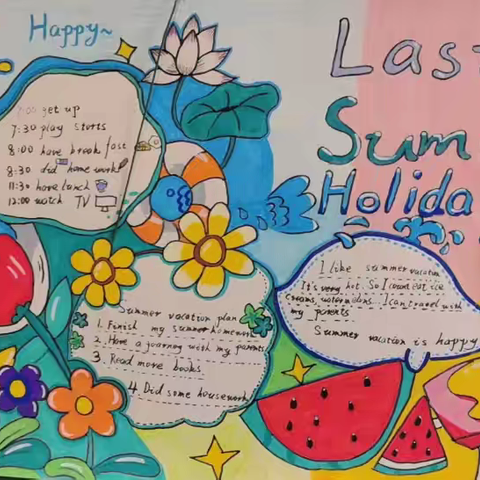 Happy~
Last
Sum
Holida
7:00 get up
7:30 play storts
8:00 have break fast
8:30 did home work
11:30 have lunch
12:00 watch TV
I like summer vacation
It's very hot. So I count eat ice
creams, watermelons. I can travel with
my parents
Summer vacation is happy
Summer vacation plan
1. Finish my summer homework
2. Have a journey with my parents
3. Read more books
4. Did some housework